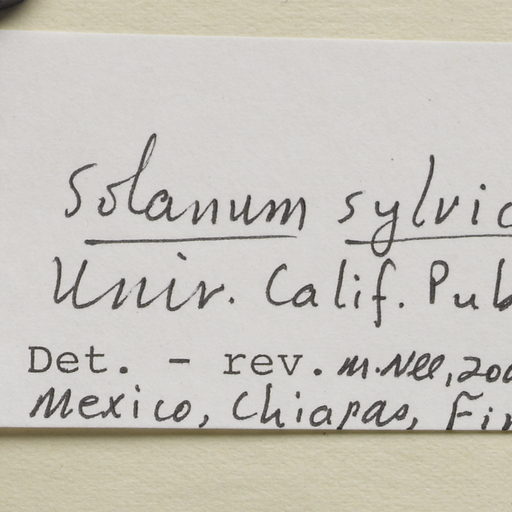 Solanum sylvic
Univ. Calif. Pub
Det. - rev. M. Nee, 200
Mexico, Chiapas, Fin